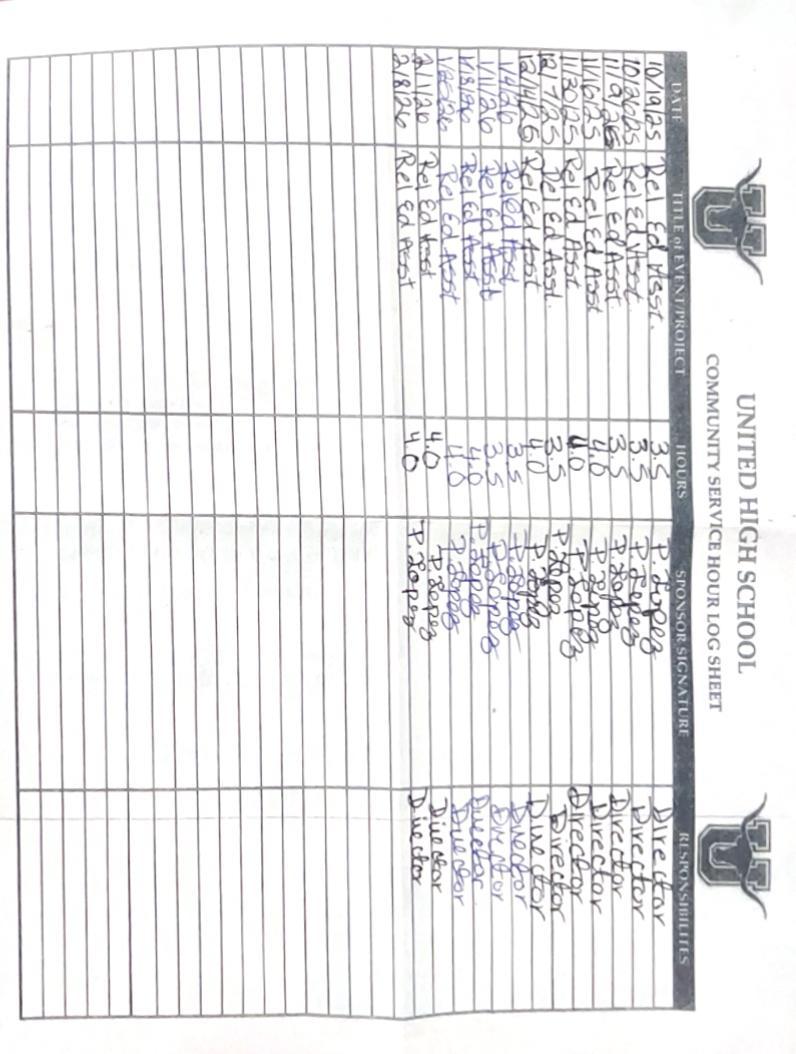 UNITED HIGH SCHOOL
COMMUNITY SERVICE HOUR LOG SHEET
DATE TITLE of EVENT/PROJECT HOURS SPONSOR SIGNATURE RESPONSIBILITES
10/19/25 Rel Ed Asst. 3.5 P. Lopez Director
10/26/25 Rel Ed Asst. 3.5 P. Lopez Director
11/9/25 Rel Ed Asst. 3.5 P. Lopez Director
11/16/25 Rel Ed Asst 4.0 P. Lopez Director
11/30/25 Rel Ed Asst. 4.0 P. Lopez Director
12/7/25 Rel Ed Asst. 3.5 P. Lopez Director
12/14/25 Rel Ed Asst 4.0 P. Lopez Director
1/4/26 Rel Ed Asst. 3.5 P. Lopez Director
1/11/26 Rel Ed Asst 3.5 P. Lopez Director
1/18/26 Rel Ed Asst 4.0 P. Lopez Director
1/25/26 Rel Ed Asst 4.0 P. Lopez Director
2/1/26 Rel Ed Asst 4.0 P. Lopez Director
2/8/26 Rel Ed Asst 4.0 P. Lopez Director